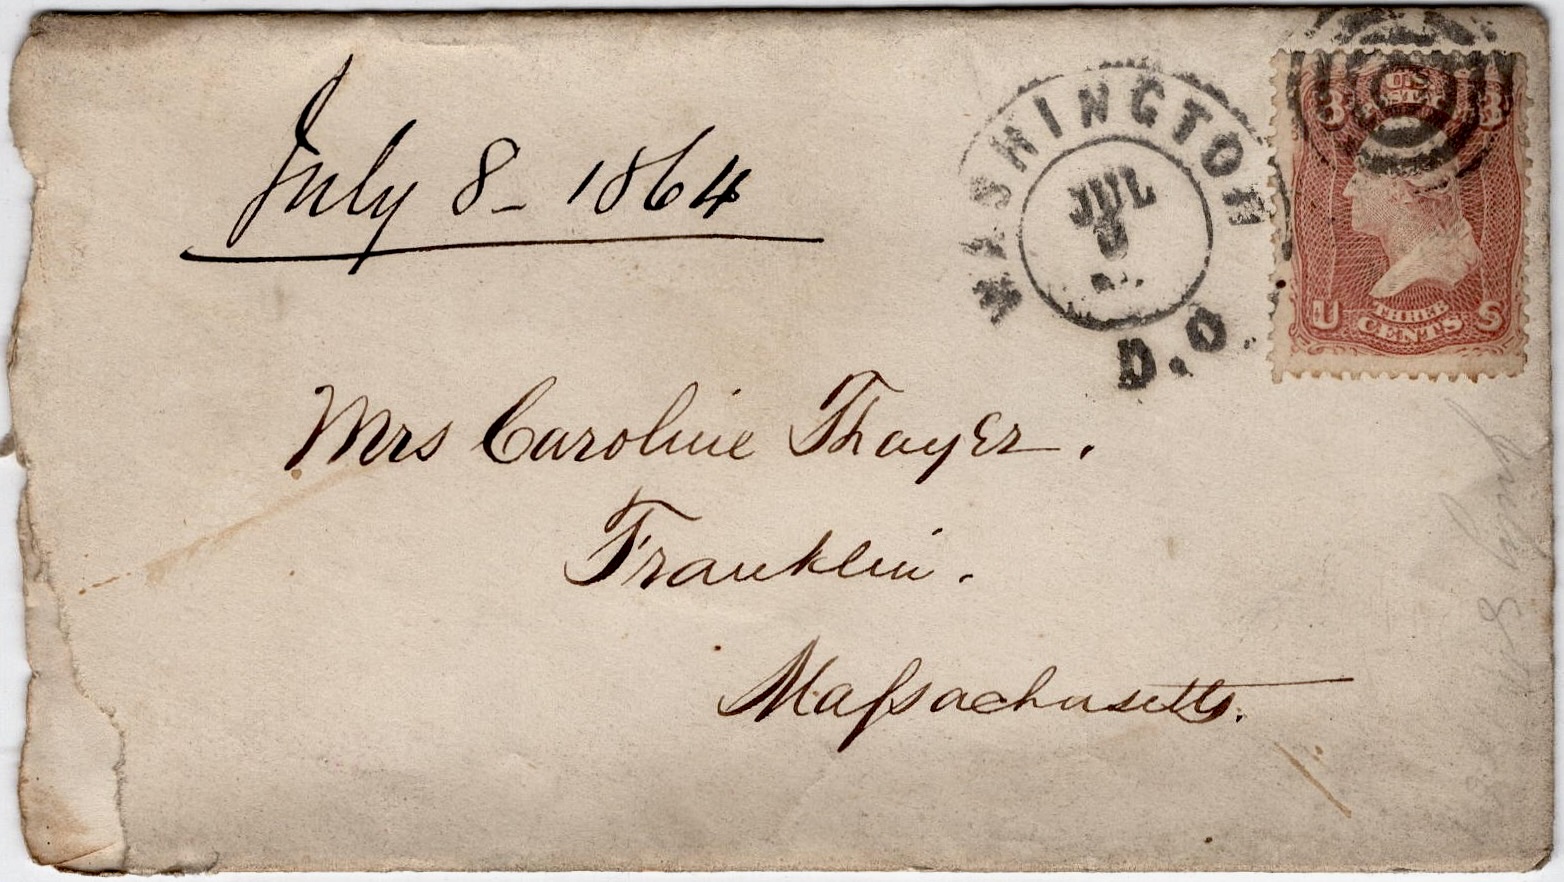 July 8 - 1864
WASHINGTON
JUL
8
D.C.
U.S.
POSTAGE
3 3
U THREE S
CENTS
Mrs Caroline Thayer.
Franklin.
Massachusetts.